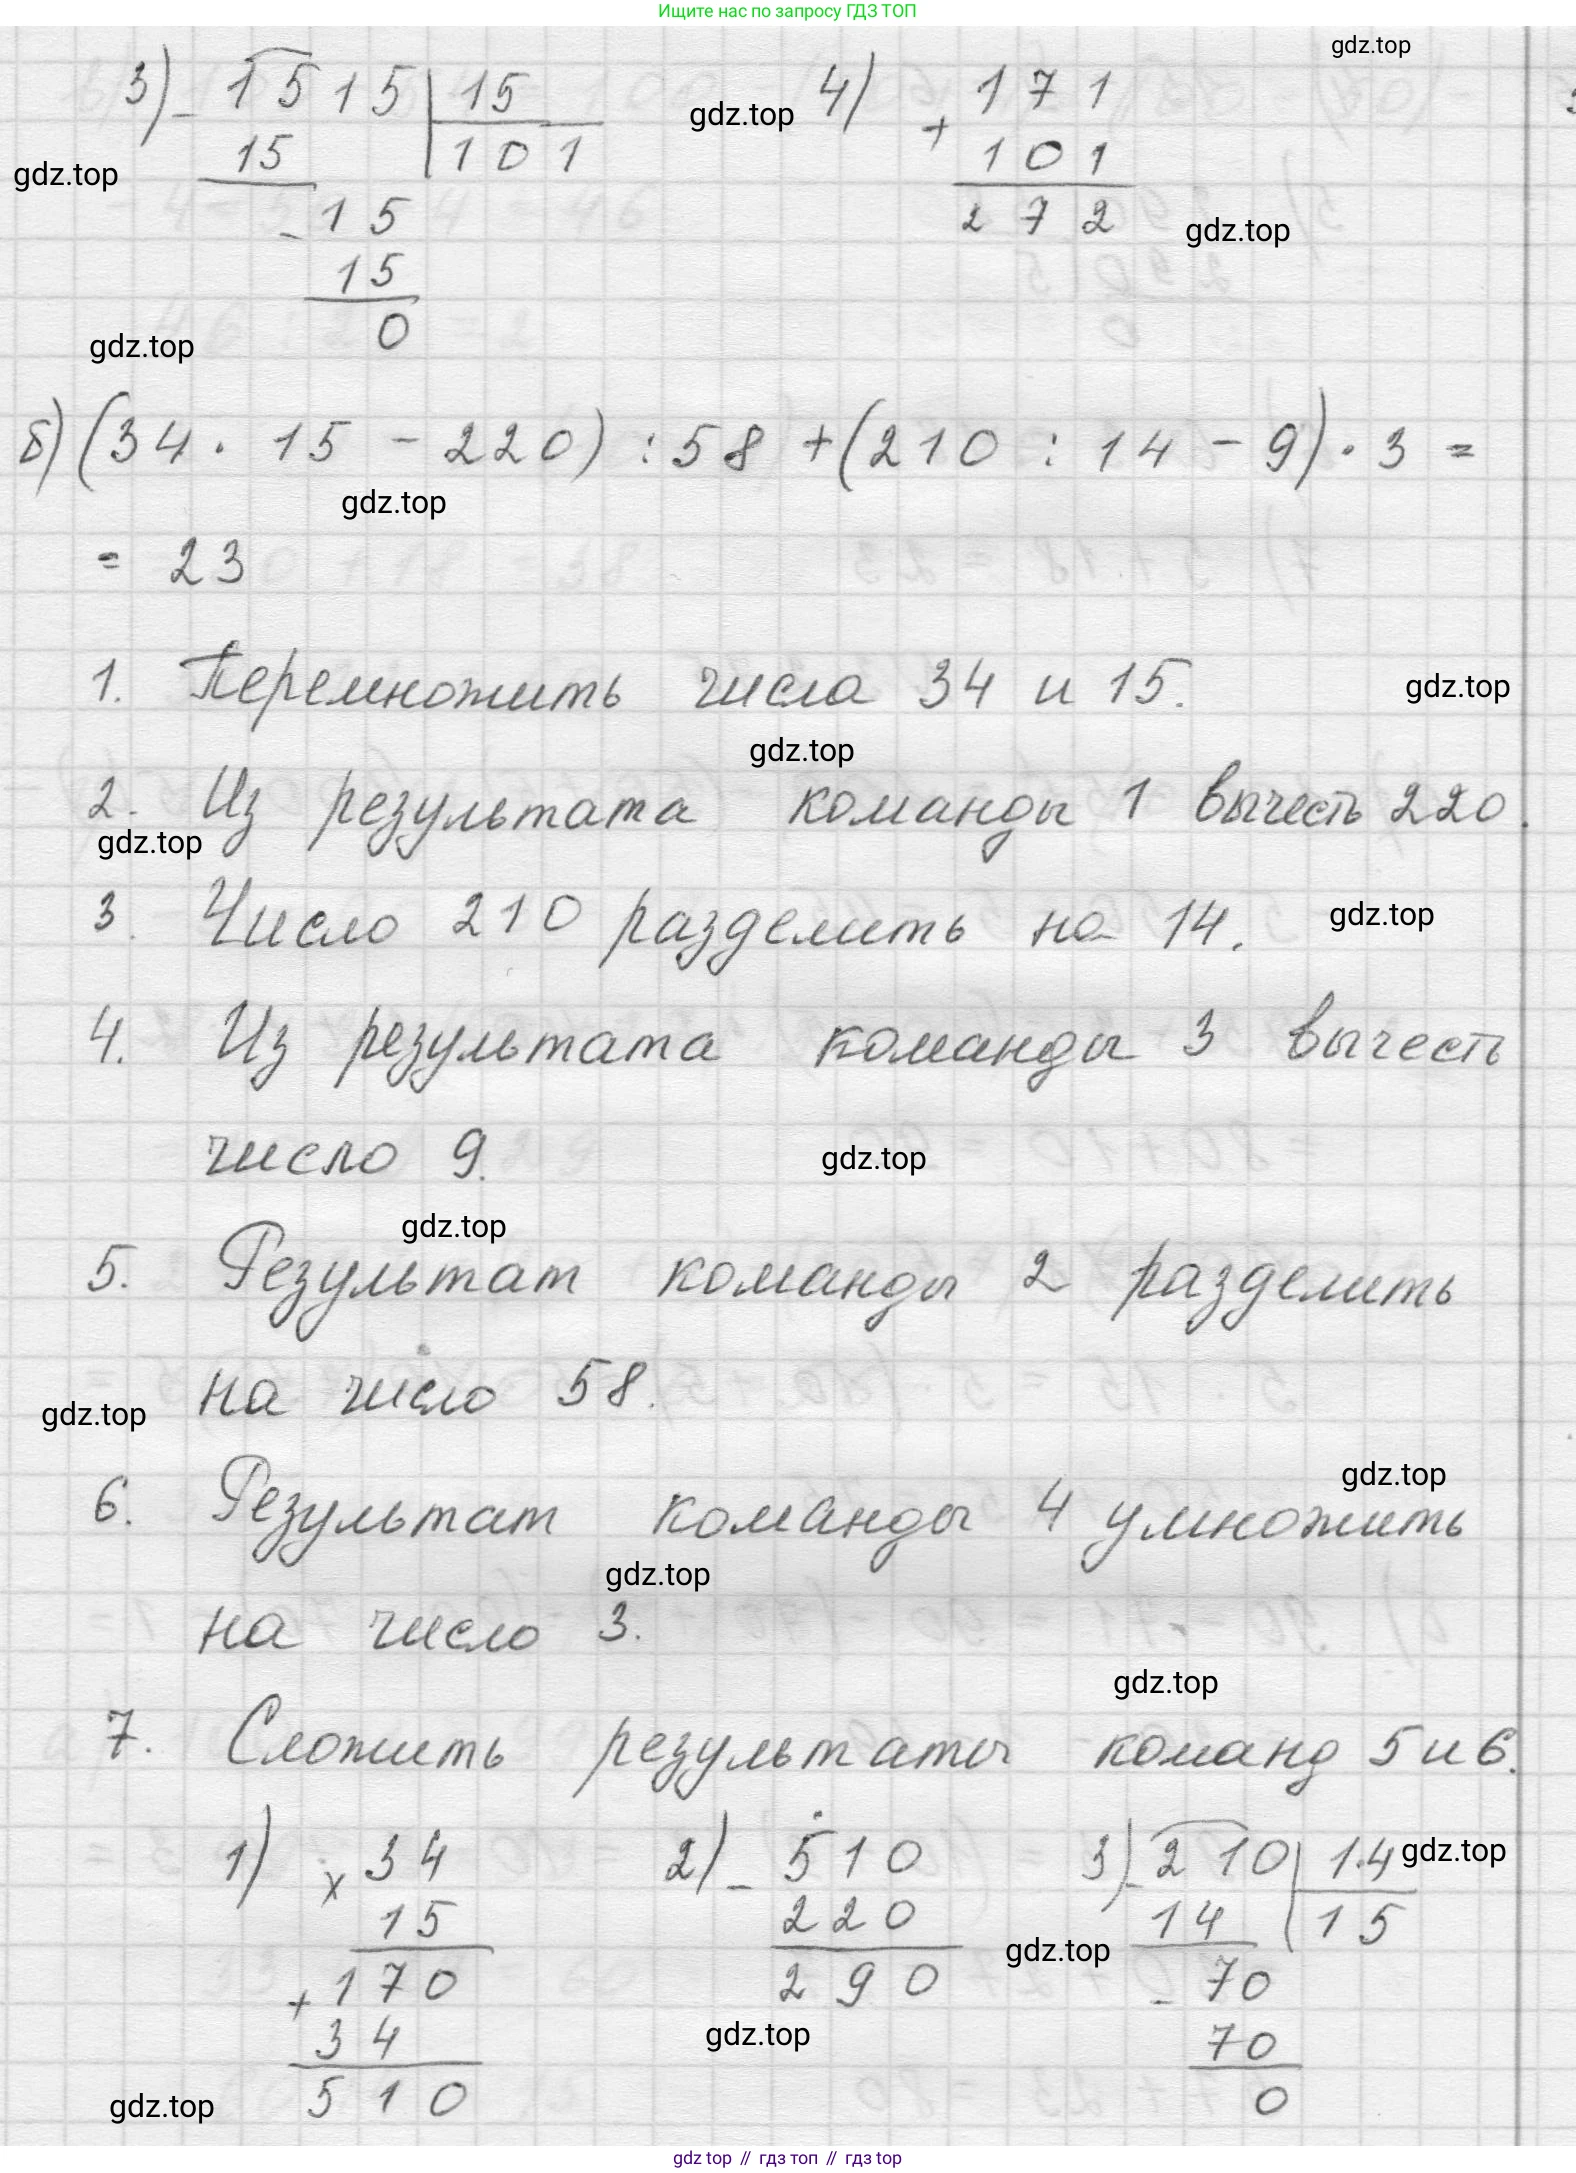 Ищите нас по запросу ГДЗ ТОП
gdz.top
3) - 1515 | 15
15 101
- 15
15
0
gdz.top
4) + 171
101
272
gdz.top
gdz.top
gdz.top
б) (34 · 15 - 220) : 58 + (210 : 14 - 9) · 3 =
gdz.top
= 23
1. Перемножить числа 34 и 15.
gdz.top
gdz.top
2. Из результата команды 1 вычесть 220.
gdz.top
3. Число 210 разделить на 14.
gdz.top
4. Из результата команды 3 вычесть
число 9.
gdz.top
gdz.top
5. Результат команды 2 разделить
на число 58.
gdz.top
gdz.top
6. Результат команды 4 умножить
gdz.top
на число 3.
gdz.top
7. Сложить результаты команд 5 и 6.
1) × 34
15
+ 170
34
510
2) - 510
220
290
3) - 210 | 14
14 15
- 70
70
0
gdz.top
gdz.top
gdz.top
gdz.top
gdz top // гдз топ // gdz top